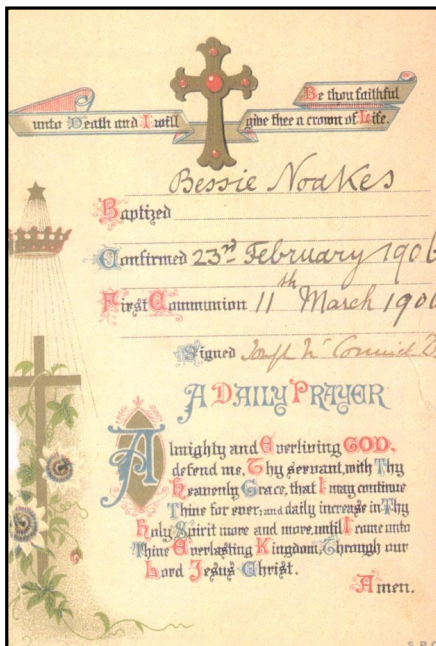 Be thou faithful
unto Death and I will give thee a crown of Life.
Bessie Noakes
Baptized
Confirmed 23rd February 1906
First Communion 11th March 190
Signed Joseph
A DAILY PRAYER
Almighty and Everliving GOD,
defend me, Thy servant, with Thy
Heavenly Grace, that I may continue
Thine for ever; and daily increase in Thy
Holy Spirit more and more, until I come unto
Thine Everlasting Kingdom, Through our
Lord Jesus Christ.
Amen.